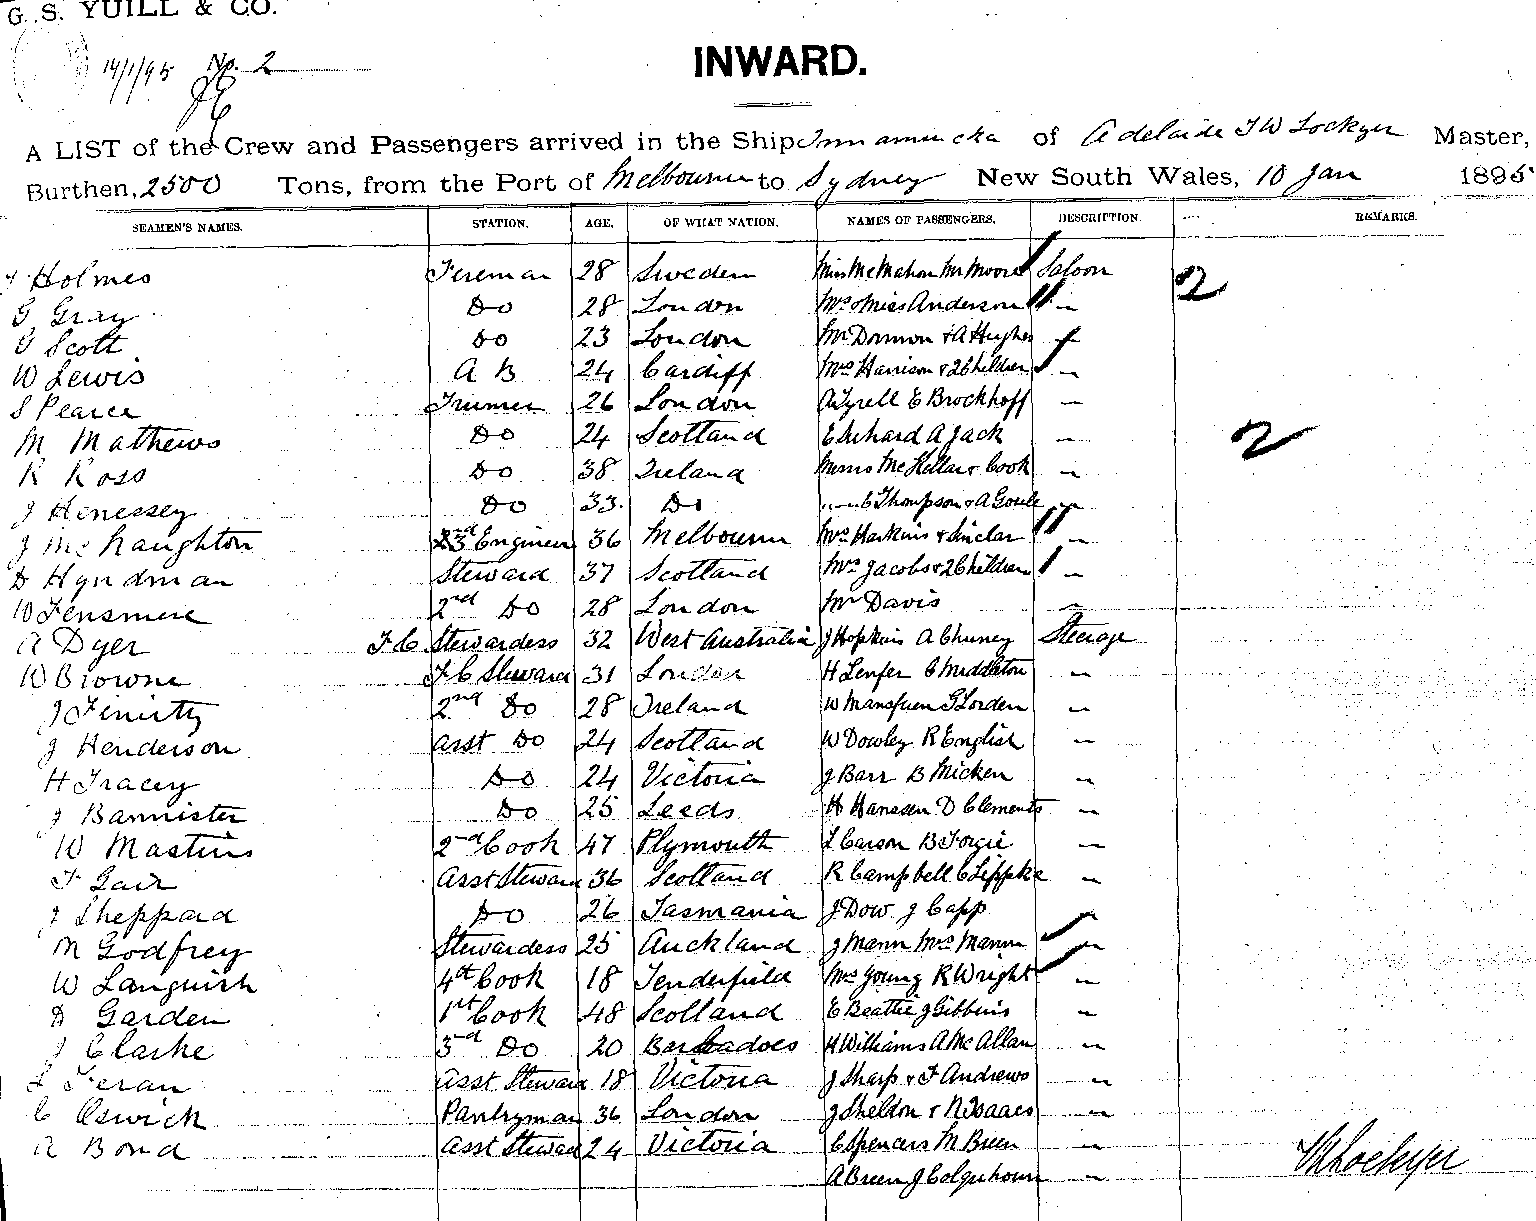 G. S. YUILL & CO.
14/1/95 No. 2
INWARD.
A LIST of the Crew and Passengers arrived in the Ship Innamincka of Adelaide T W Lockyer Master,
Burthen, 2500 Tons, from the Port of Melbourne to Sydney New South Wales, 10 Jan 1895
SEAMEN'S NAMES. STATION. AGE. OF WHAT NATION. NAMES OF PASSENGERS. DESCRIPTION. REMARKS.
Holmes Fireman 28 Sweden Miss McMahon Mr Moore Saloon 2
G Gray Do 28 London Mrs & Miss Anderson "
G Scott Do 23 London Mr Dorman & A Hughes "
W Lewis A B 24 Cardiff Mrs Harrison & 2 Children "
S Pearce Trimer 26 London A Tyrell E Brockhoff "
M Mathews Do 24 Scotland A Jack " 2
R Ross Do 38 Ireland Misses McKellar & Cook "
J Henessey Do 33 Do " C Thompson & A Goule "
J McNaughton 3rd Engineer 36 Melbourne Mrs Harkins & Sinclar "
D Hyndman Steward 37 Scotland Mrs Jacobs & 2 Children "
W Fensmere 2nd Do 28 London Mr Davis "
A Dyer F C Stewardess 32 West Australia J Hopkins A Chuney Steerage
W Browne F C Steward 31 London H Lenfer C Middleton "
J Finirty 2nd Do 28 Ireland W G Lorden "
J Henderson asst Do 24 Scotland W Dowley R English "
H Tracey Do 24 Victoria J Barr B Micken "
J Bannister Do 25 Leeds H Hansden D Clements "
W Mastins 2nd Cook 47 Plymouth L Carson B Forgie "
F Gair Asst Steward 36 Scotland R Campbell C Lippke "
J Sheppard Do 26 Tasmania J Dow J Capp "
M Godfrey Stewardess 25 Auckland J Mann Mrs Mann "
W Languish 4th Cook 18 Tenderfield Mrs Young R Wright "
D Garden 1st Cook 48 Scotland E Beattie J Gibbins "
J Clarke 3rd Do 20 Barbadoes H Williams A McAllan "
L Feran Asst Steward 18 Victoria J Sharp & F Andrews "
C Oswick Pantryman 36 London J Sheldon & N Isaacs "
A Bond Asst Steward 24 Victoria C Spencers M Breen "
A Breen J Colquhoun "
Lockyer